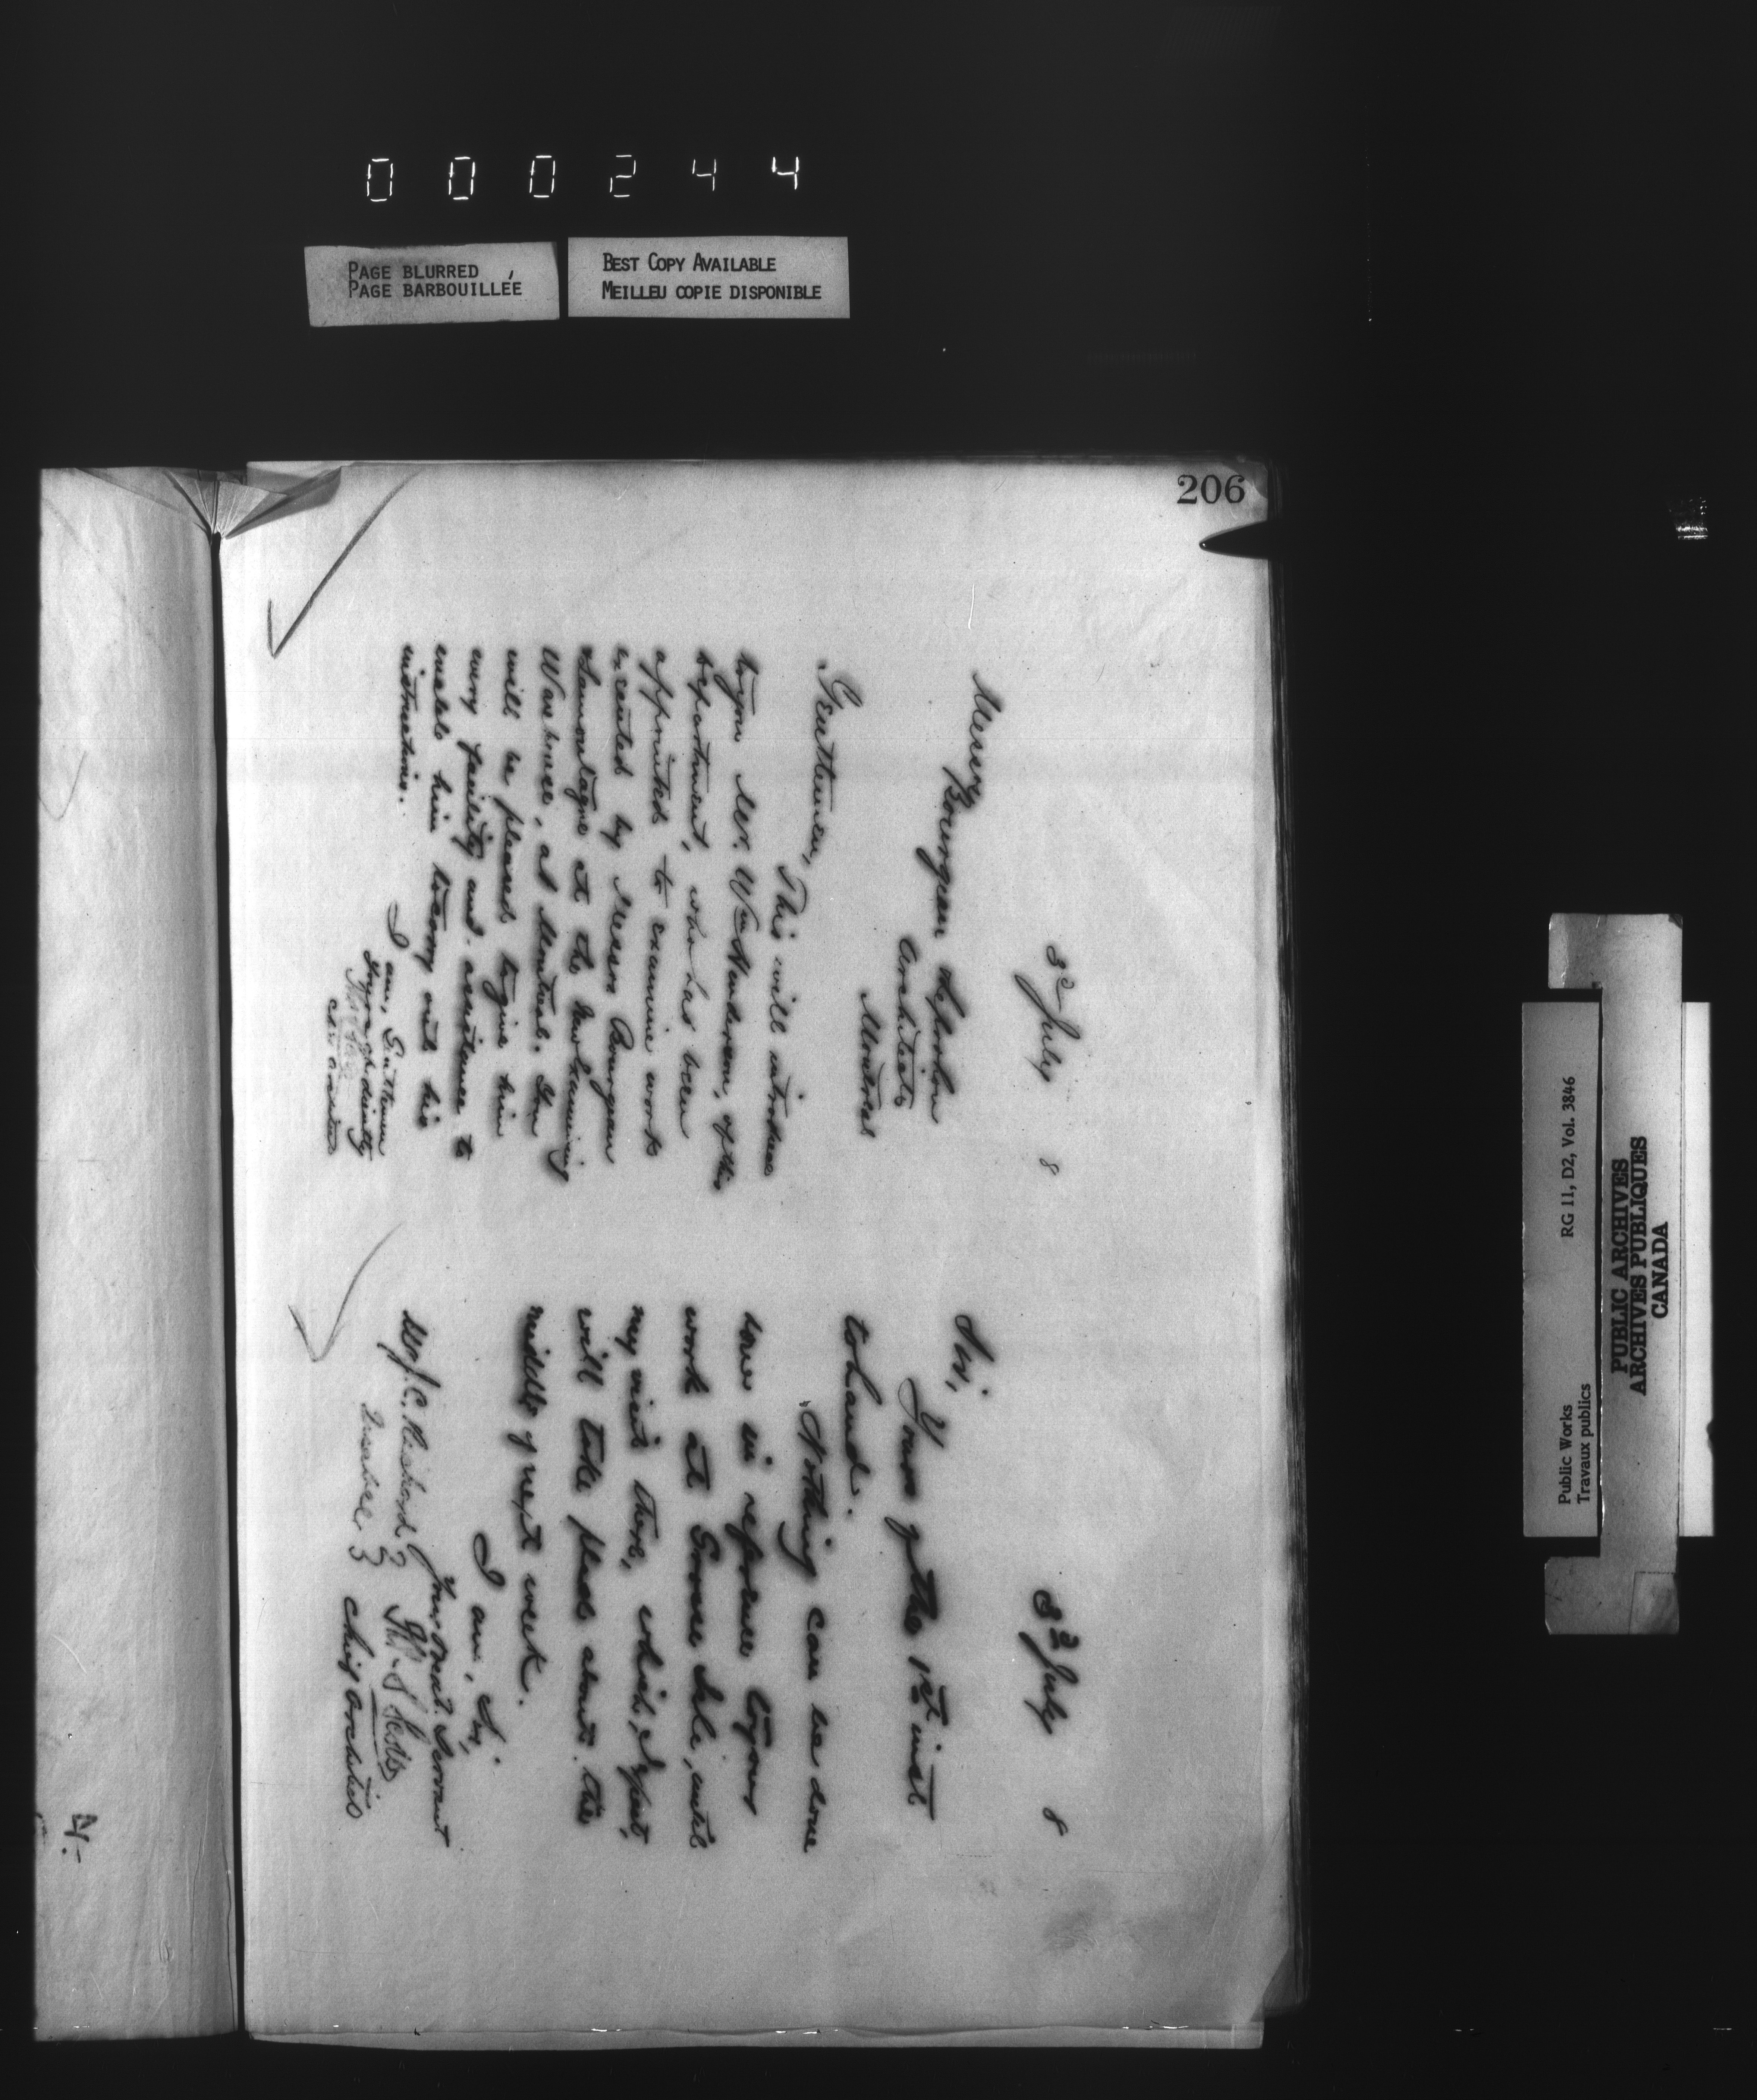 000244
PAGE BLURRED
PAGE BARBOUILLÉE
BEST COPY AVAILABLE
MEILLEU COPIE DISPONIBLE
206
3d July 8
Messrs
Bourgeau
Architects
Montreal
Gentlemen,
This will introduce
to you Mr. Wm Henderson, of this
department, who has been
appointed to examine works
executed by Messrs Bourgeau
at the New Examining
Warehouse, at Montreal. You
will be pleased to give him
every facility and assistance to
enable him to carry out his
instructions.
I am, Gentlemen
Yrs obediently
Chf Architect
3d July 8
Sir,
Yours of the 1st inst
to hand.
Nothing can be done
here in reference to your
work at Grosse Isle, until
my visit there, which, I expect,
will take place about the
middle of next week.
I am, Sir,
Your Obedt. Servant
Chief Architect
Quebec
Public Works
Travaux publics
RG 11, D2, Vol. 3846
PUBLIC ARCHIVES
ARCHIVES PUBLIQUES
CANADA